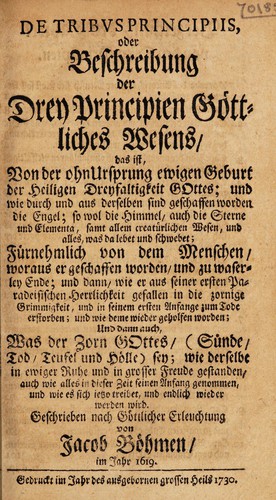 7018
DE TRIBVS PRINCIPIIS,
oder
Beschreibung
der
Drey Principien Gött-
liches Wesens/
das ist,
Von der ohnUrsprung ewigen Geburt
der Heiligen Dreyfaltigkeit GOttes; und
wie durch und aus derselben sind geschaffen worden
die Engel; so wol die Himmel, auch die Sterne
und Elementa, samt allem creatürlichen Wesen, und
alles, was da lebet und schwebet;
Fürnehmlich von dem Menschen,
woraus er geschaffen worden, und zu waser-
ley Ende; und dann, wie er aus seiner ersten Pa-
radeisischen Herrlichkeit gefallen in die zornige
Grimmigkeit, und in seinem ersten Anfange zum Tode
erstorben; und wie deme wieder geholfen worden;
Und dann auch,
Was der Zorn GOttes, (Sünde,
Tod, Teufel und Hölle) sey; wie derselbe
in ewiger Ruhe und in grosser Freude gestanden,
auch wie alles in dieser Zeit seinen Anfang genommen,
und wie es sich ietzo treibet, und endlich wieder
werden wird.
Geschrieben nach Göttlicher Erleuchtung
von
Jacob Böhmen/
im Jahr 1619.
Gedruckt im Jahr des ausgebornen grossen Heils 1730.